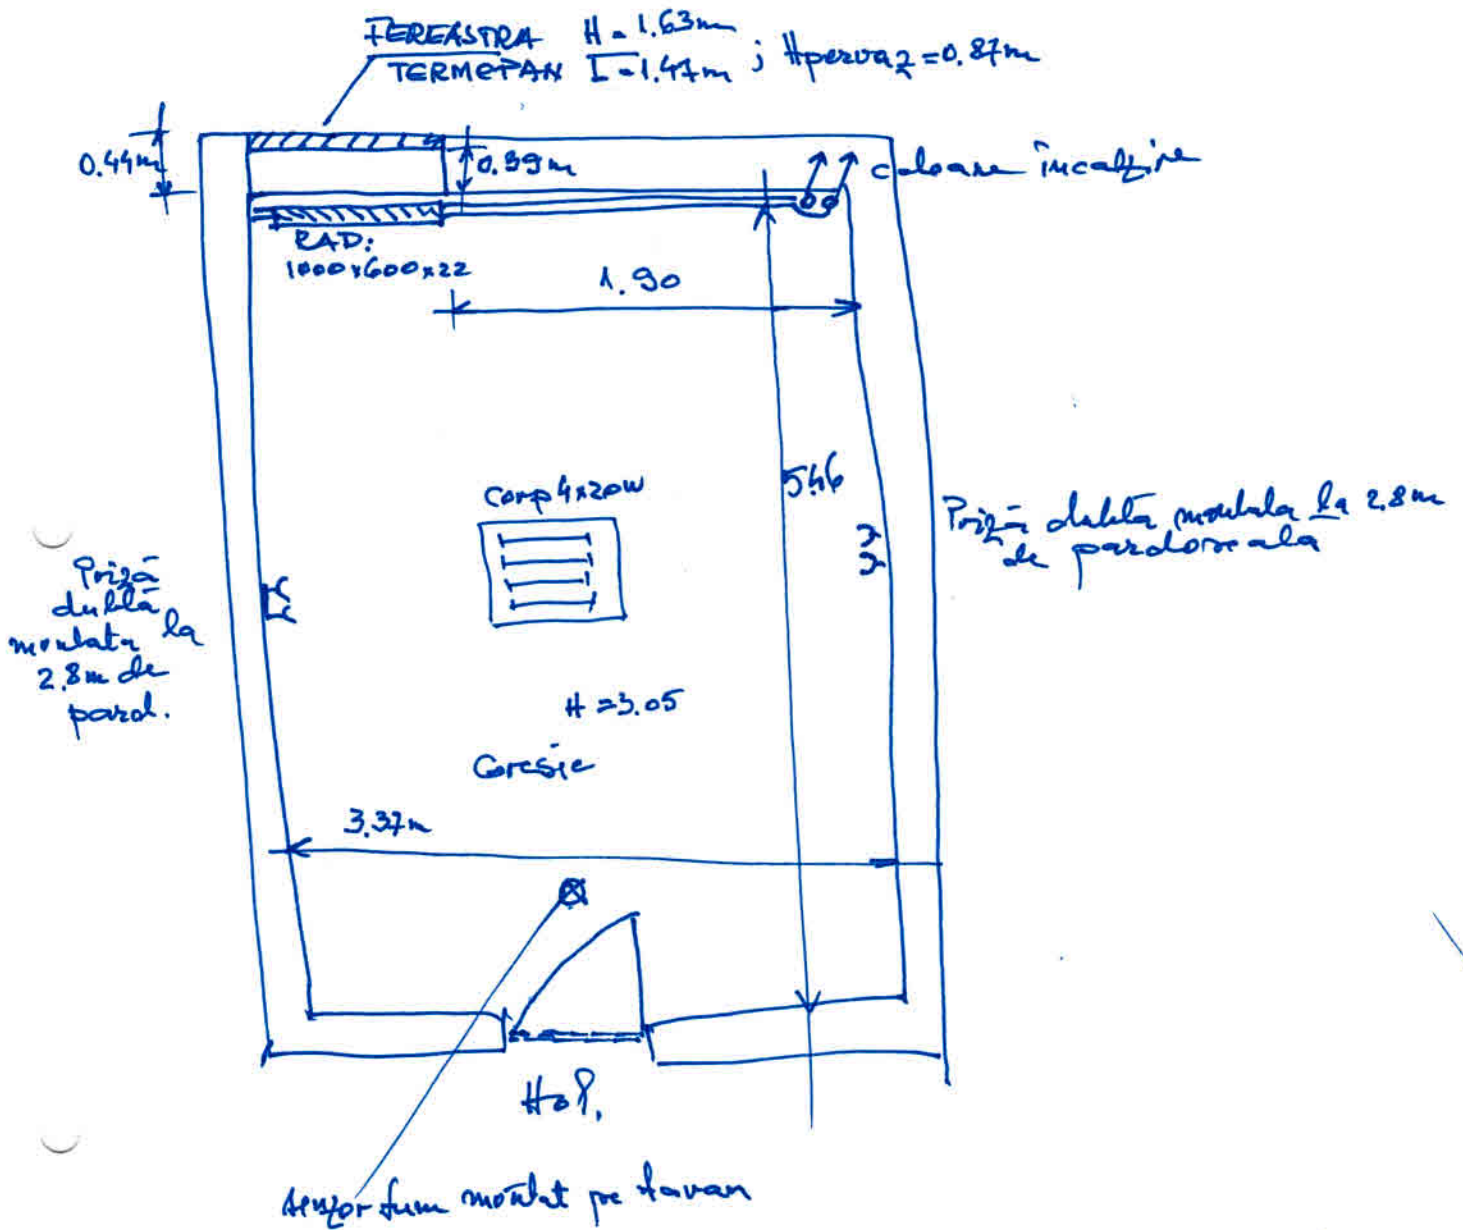 FEREASTRA H=1.63m
TERMOPAN L=1.47m ; Hpervaz=0.87m
0.44m
0.39m
coloane încalzire
RAD:
1000x600x22
1.90
5.46
Corp 4x20W
Priză dublă montata la 2.8m
de pardoseala
Priză
dublă
montata la
2.8m de
pard.
H=3.05
Gresie
3.37m
Hol.
senzor fum montat pe tavan